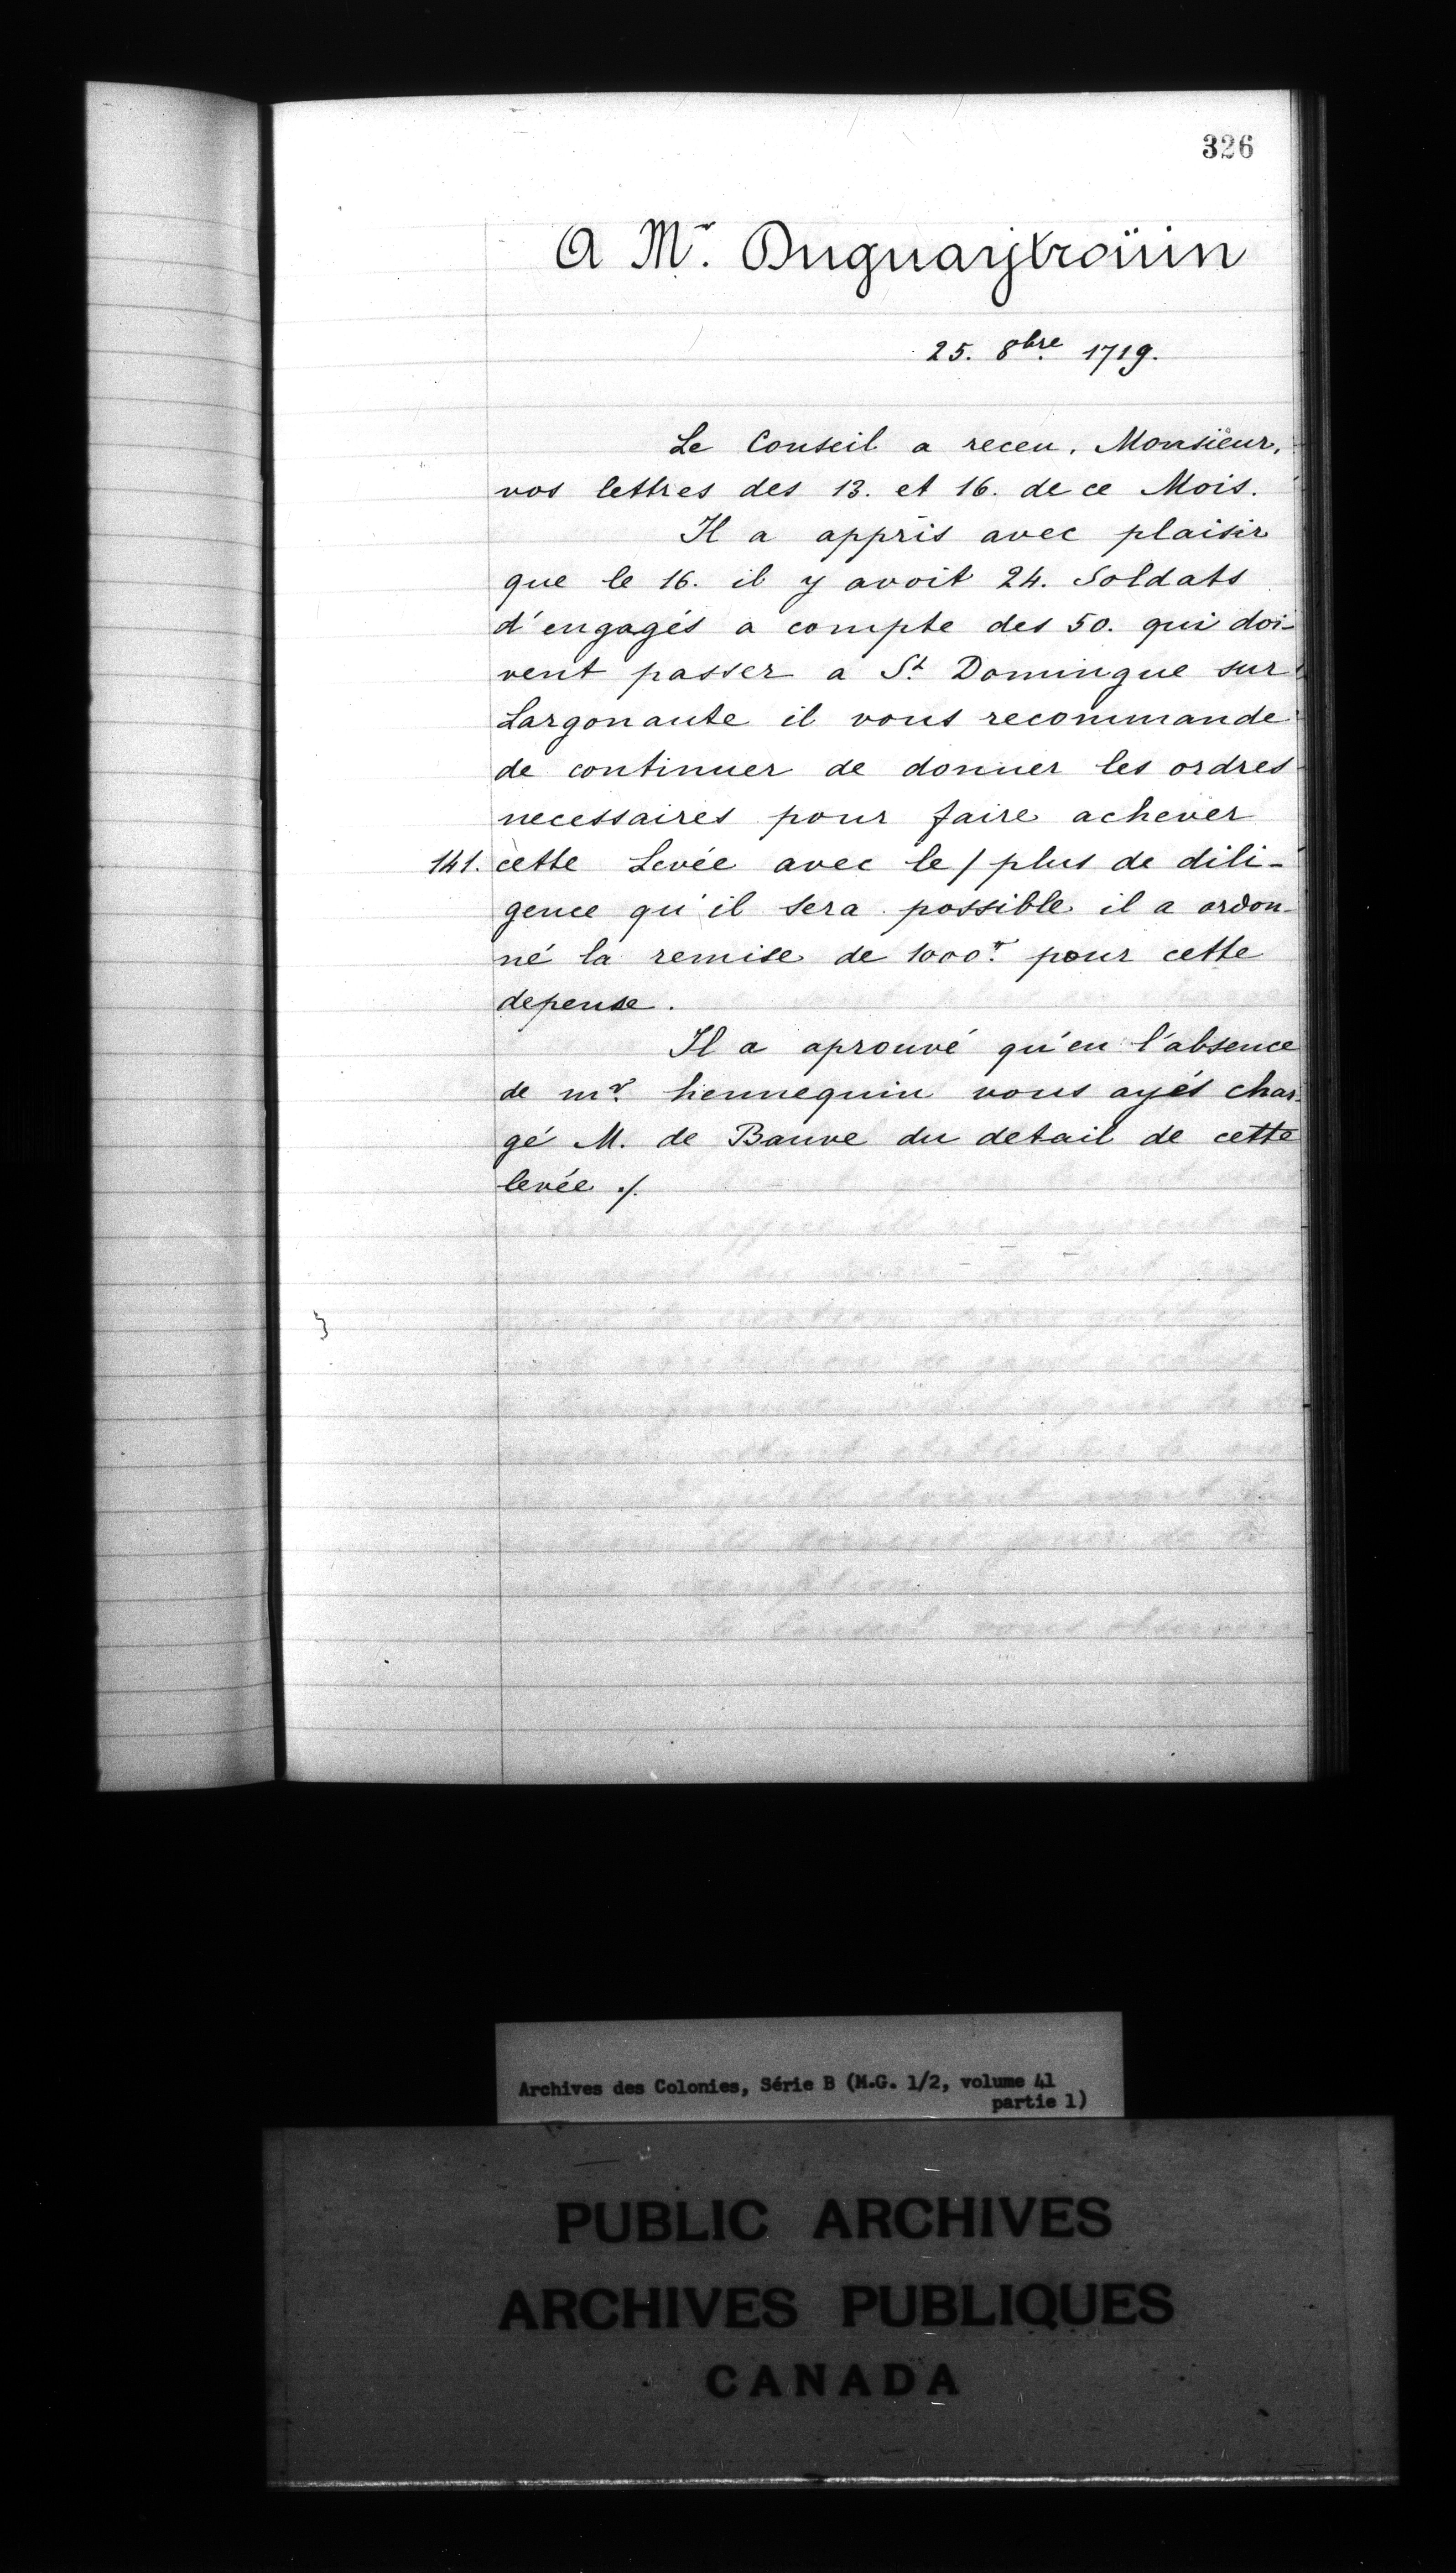 326
A Mr. Duguaytroüin
25. 8bre 1719.
Le Conseil a receu, Monsieur,
vos lettres des 13. et 16. de ce Mois.
Il a appris avec plaisir
que le 16. il y avoit 24. Soldats
d'engagés a compte des 50. qui doi-
vent passer a St Domingue sur
Largonaute il vous recommande
de continuer de donner les ordres
necessaires pour faire achever
141. cette Levée avec le / plus de dili-
gence qu'il sera possible il a ordon-
né la remise de 1000tt pour cette
depense.
Il a aprouvé qu'en l'absence
de mr. hennequin vous ayés char-
gé M. de Bauve du detail de cette
levée ./.
Archives des Colonies, Série B (M.G. 1/2, volume 41
partie 1)
PUBLIC ARCHIVES
ARCHIVES PUBLIQUES
CANADA